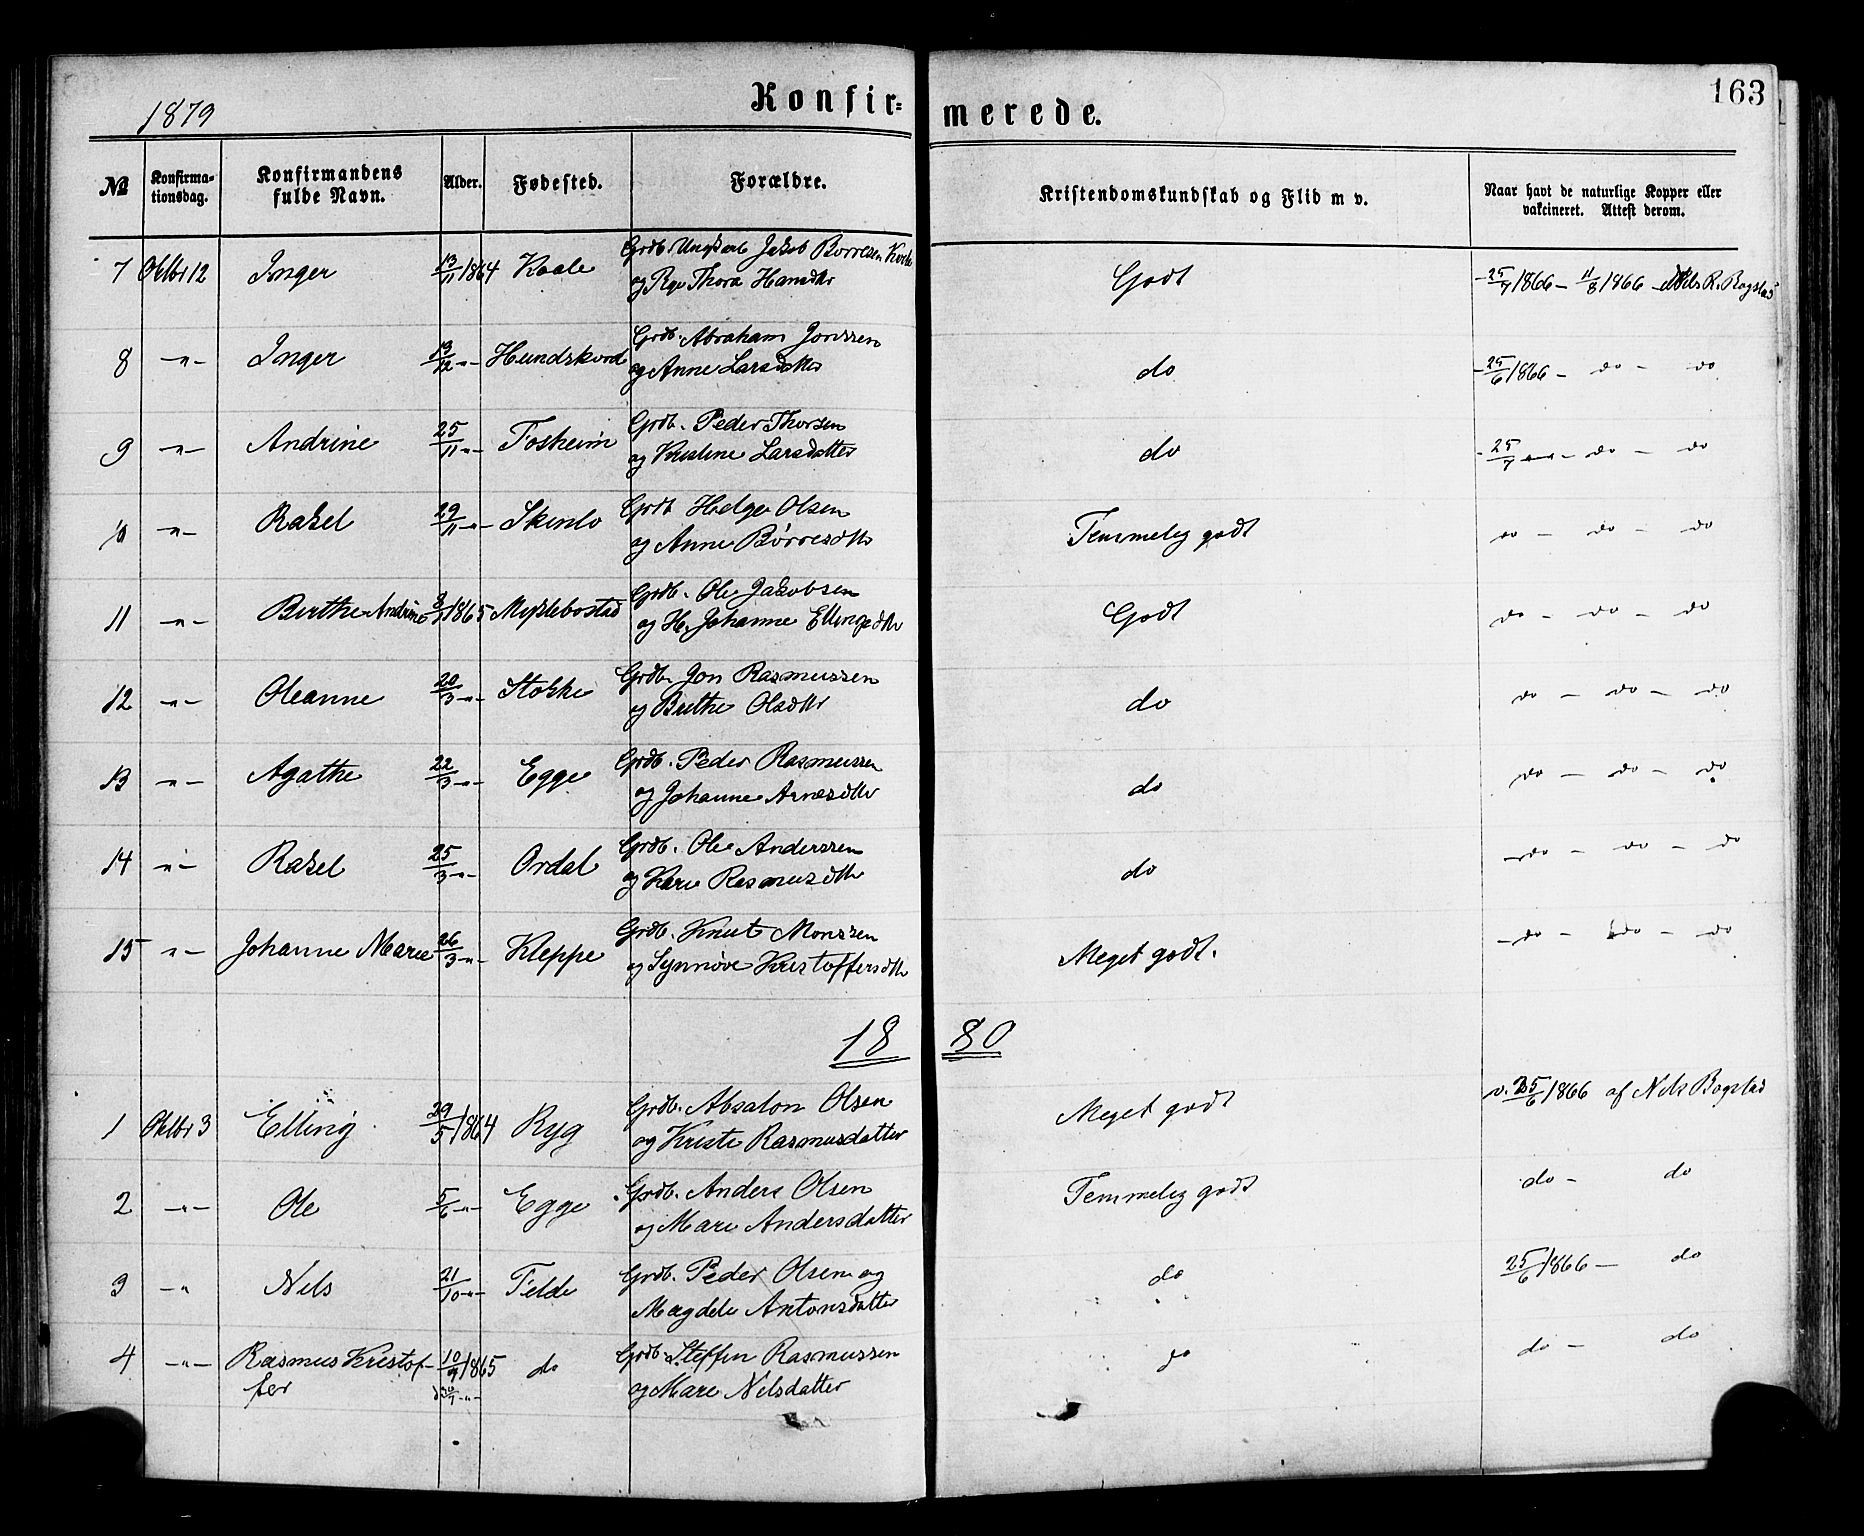 1879 Konfir= merede. 163
№ Konfirma-tionsdag. Konfirmandens fulde Navn. Alder. Fødested. Forældre. Kristendomskundskab og Flid m v. Naar havt de naturlige Kopper eller vakcineret. Attest derom.
7 Oktbr 12 Inger 13/11 1864 Grdb. Ungkarl Jakob Borresen
og Pige Thora Hansdtr Godt - 25/7 1866 - 11/8 1866 - Nils R. Bogstad
8 -"- Inger 13/12 -"- Hundskord Grdb. Abraham Jonssen
og Anne Larsdttr do - 25/6 1866 - do - do
9 -"- Andrine 25/11 -"- Fosheim Grdb. Peder Thorsen
og Kristine Larsdatter do - 25/7 -"- - do - do
10 -"- Rakel 29/11 -"- Skinlo Grdb Helge Olsen
og Anne Børresdttr Temmelig godt do - do - do
11 -"- Birthe Andrine 1865 Myklebostad Grdb. Ole Jakobsen
og H. Johanne Ellingsdttr Godt do - do - do
12 -"- Oleanne 20/3 -"- Stokke Grdb. Jon Rasmussen
og Birthe Olsdttr do do - do - do
13 -"- Agathe 22/3 -"- Egge Grdb. Peder Rasmussen
og Johanne Arnesdttr do do - do - do
14 -"- Rakel 25/3 -"- Ordal Grdb. Ole Anderssen
og Kari Rasmusdttr do - do - do - do
15 -"- Johanne Marie 26/3 -"- Kleppe Grdb. Knut Monssen
og Synnøve Kristoffersdttr Meget godt. - do - do - do
18 80
1 Oktbr 3 Elling 29/5 1864 Ryg Grdb. Absalon Olsen
og Kristi Rasmusdatter Meget godt v. 25/6 1866 af Nils Bogstad
2 -"- Ole 5/6 -"- Egge Grdb. Anders Olsen
og Mari Andersdatter Temmelig godt do - do
3 -" Nils 21/10 -"- Felde Grdb. Peder Olsen og
Magdele Antonsdatter do 25/6 1866 - do
4 -"- Rasmus Kristof- 10/9 1865 do Grdb. Steffen Rasmussen
fer og Mari Nilsdatter do do - do